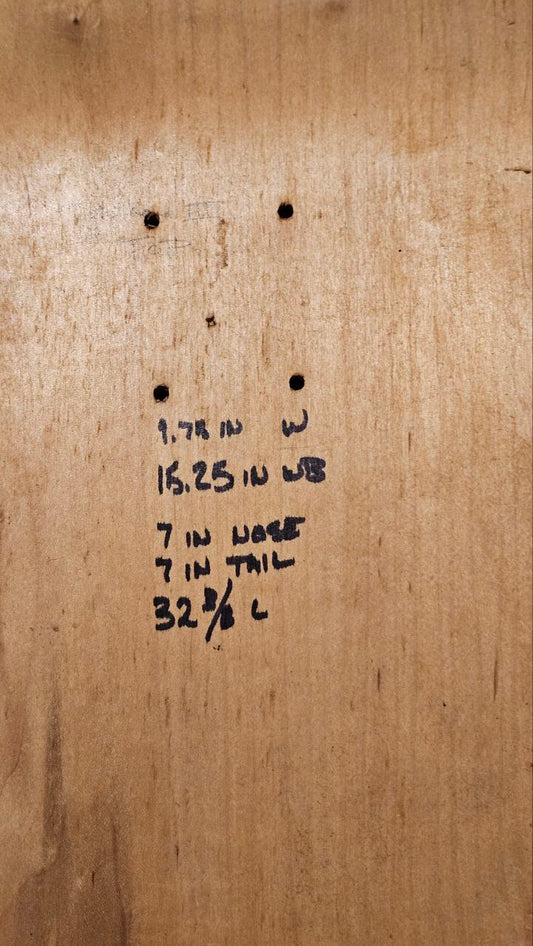 9.75 IN W
15.25 IN WB
7 IN NOSE
7 IN TAIL
32 3/8 L